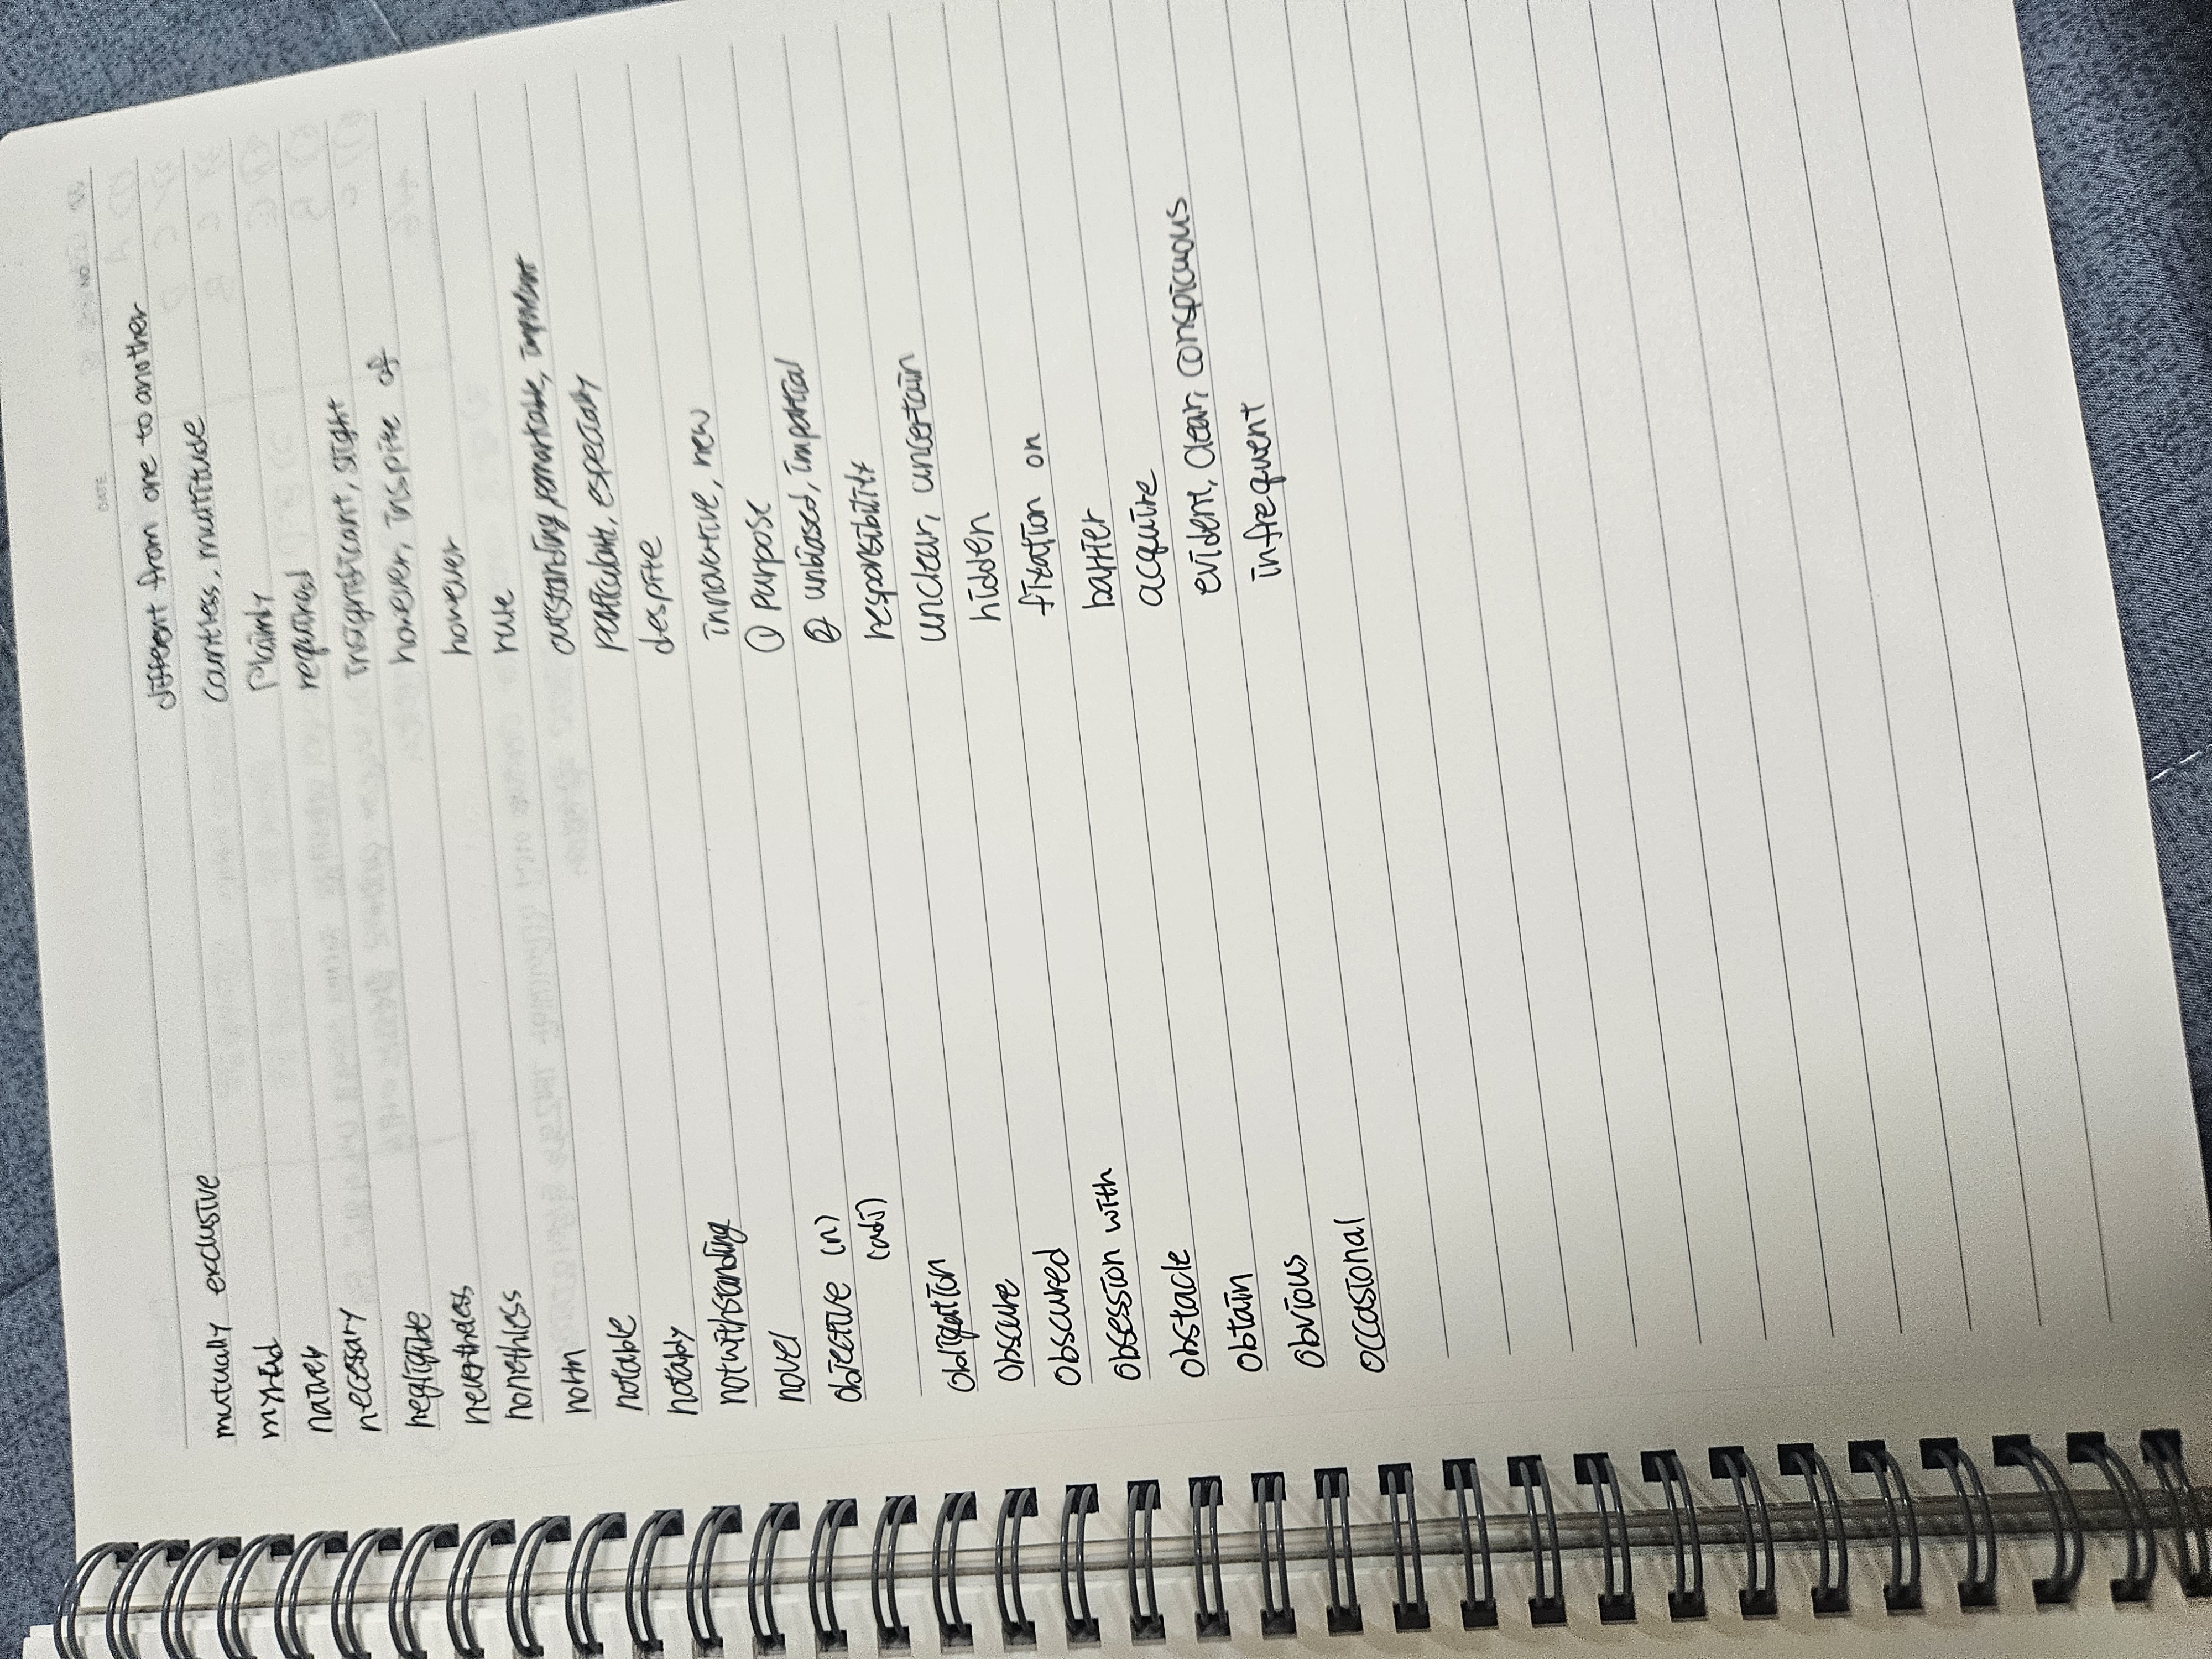 DATE NO.
mutually exclusive different from one to another
myriad countless, multitude
naively plainly
necessary required
negligible insignificant, slight
nevertheless however, inspite of
nonethless however
norm rule
notable outstanding, remarkable, important
notably particularly, especially
notwithstanding despite
novel innovative, new
objective (n) ① purpose
(adj) ② unbiased, impartial
obligation responsibility
obscure unclear, uncertain
obscured hidden
obsession with fixation on
obstacle barrier
obtain acquire
obvious evident, clear, conspicuous
occasional infrequent